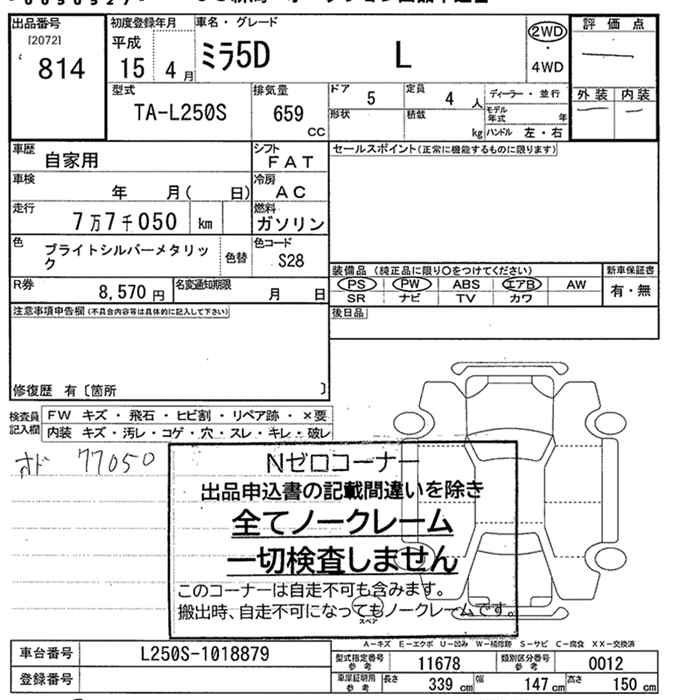 出品番号
[2072]
814
初度登録年月
平成
15 4月
車名・グレード
ミラ5D L
2WD
・
4WD
評価点
外装 内装
型式
TA-L250S
排気量
659
CC
ドア
5
定員
4人
ディーラー・並行
形状
積載
kg
モデル年式 年
ハンドル 左・右
車歴
自家用
シフト
FAT
セールスポイント(正常に機能するものに限ります)
車検
年 月( 日)
冷房
AC
走行
7万7千050 km
燃料
ガソリン
色
ブライトシルバーメタリック
色替
色コード
S28
装備品 (純正品に限り○をつけてください)
新車保証書
PS PW ABS エアB AW
SR ナビ TV カワ
有・無
R券
8,570円
名変通知期限
月 日
注意事項申告欄(不具合内容等は具体的に記入して下さい)
後日品
修復歴 有〔箇所 〕
検査員記入欄
FW キズ・飛石・ヒビ割・リペア跡・×要
内装 キズ・汚レ・コゲ・穴・スレ・キレ・破レ
オド 77050
Nゼロコーナー
出品申込書の記載間違いを除き
全てノークレーム
一切検査しません
このコーナーは自走不可も含みます。
搬出時、自走不可になってもノークレームです。
スペア
A−キズ E−エクボ U−凹み W−補修跡 S−サビ C−腐食 XX−交換済
車台番号
L250S-1018879
型式指定番号
参考
11678
類別区分番号
参考
0012
登録番号
車庫証明用
参考
長さ
339 cm
幅
147 cm
高さ
150 cm